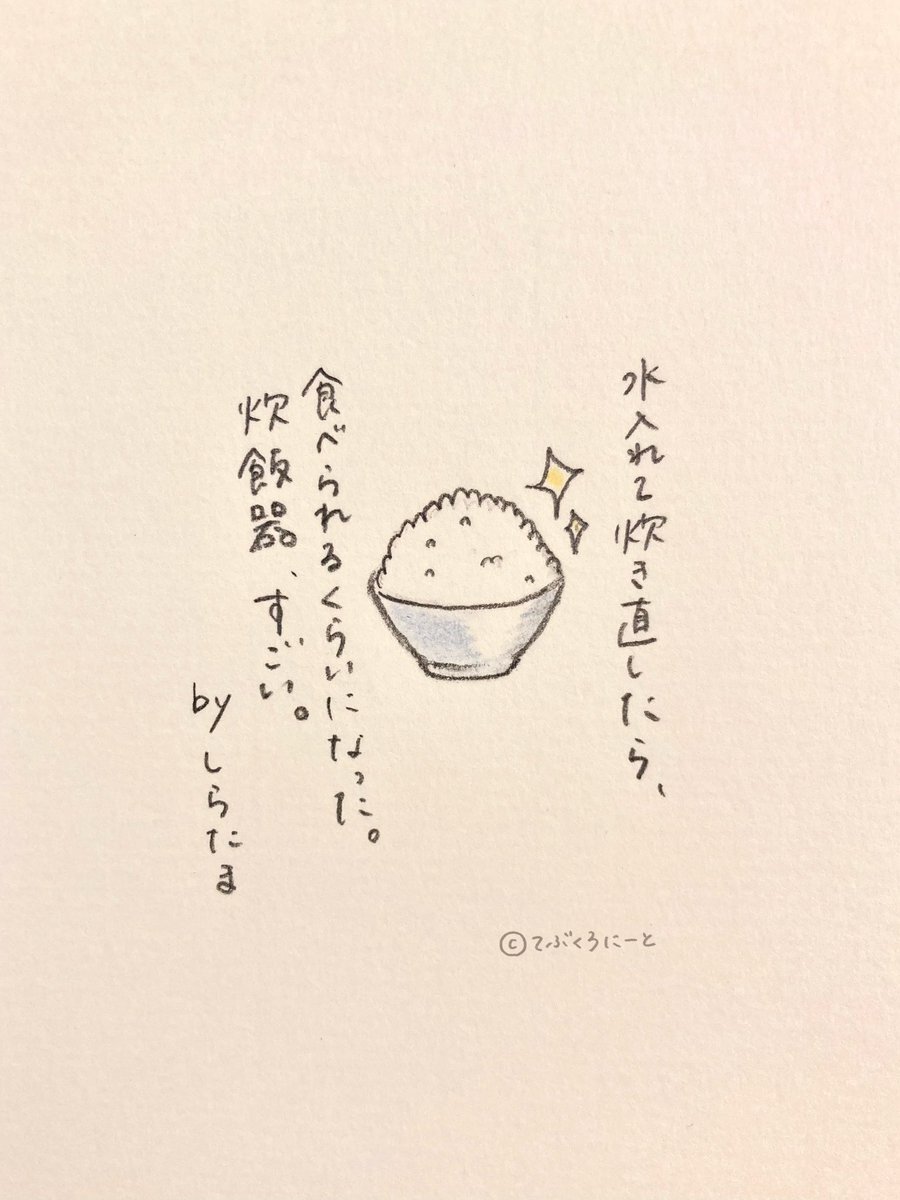 水入れて炊き直したら、
食べられるくらいになった。
炊飯器、すごい。
by しらたま
©てぶくろにーと